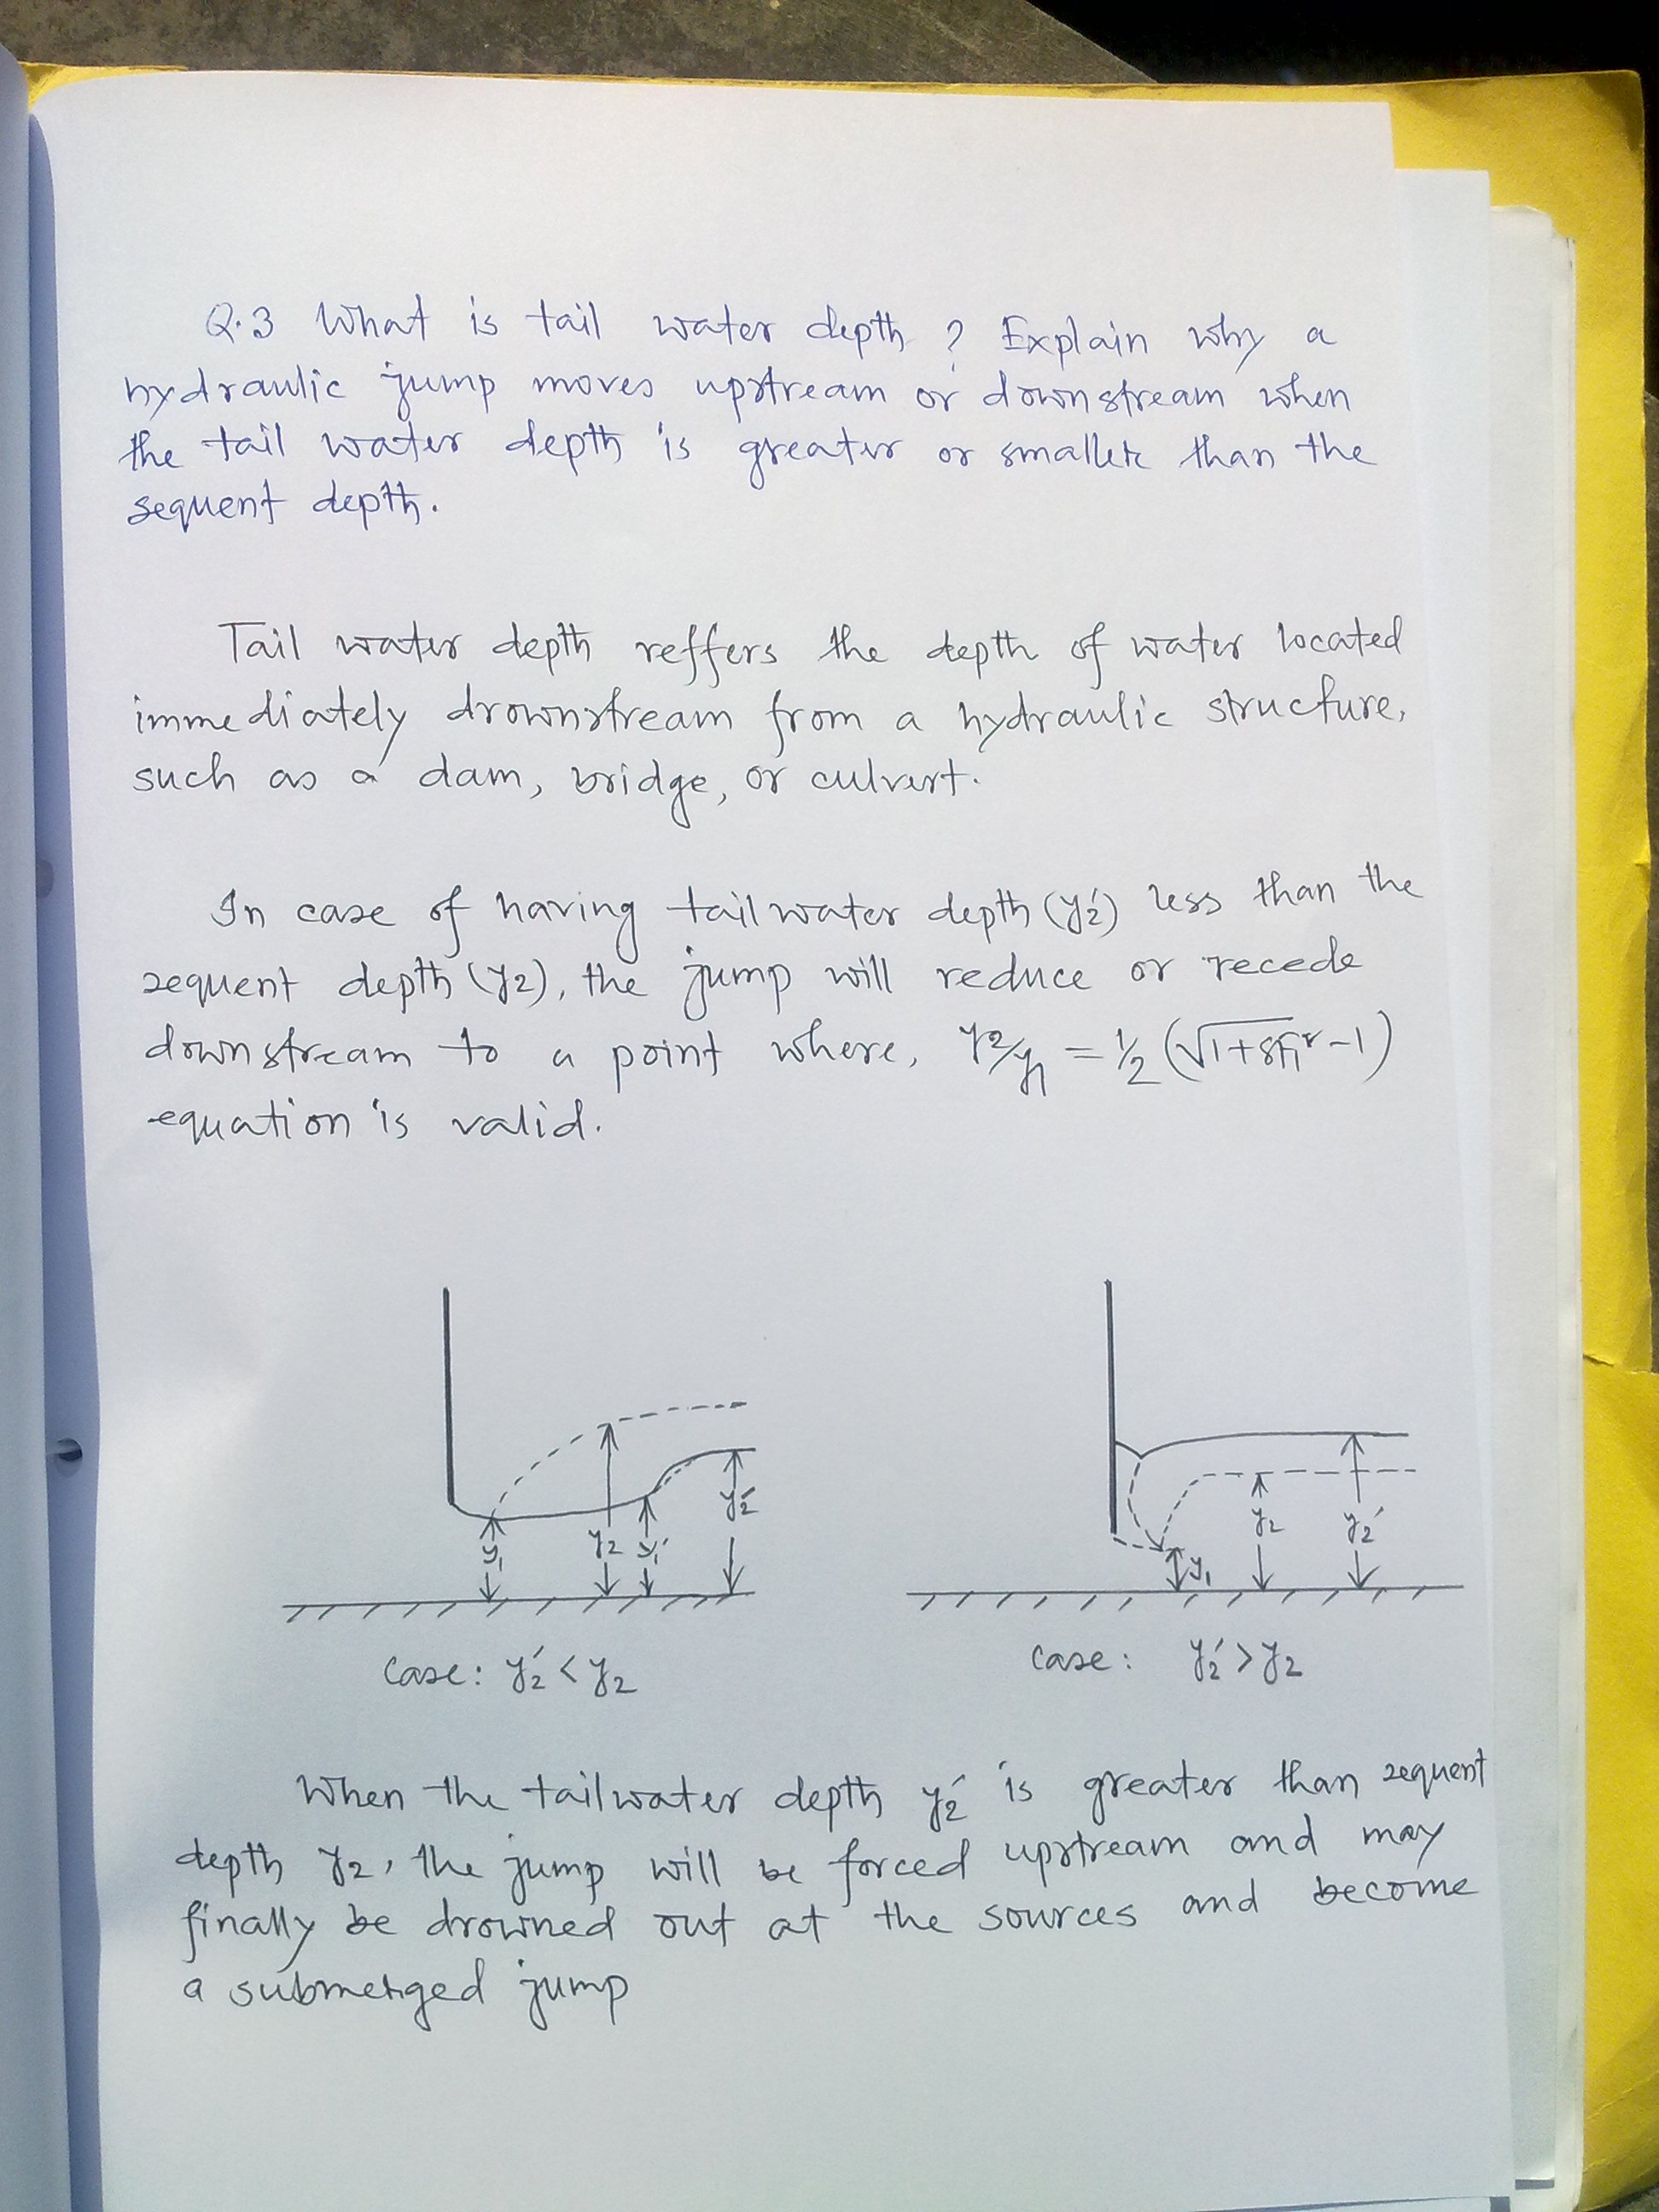 Q.3 What is tail water depth ? Explain why a
hydraulic jump moves upstream or downstream when
the tail water depth is greater or smaller than the
sequent depth.
Tail water depth reffers the depth of water located
immediately drownstream from a hydraulic structure,
such as a dam, bridge, or culvert.
In case of having tailwater depth (y₂′) less than the
sequent depth (y₂), the jump will reduce or recede
downstream to a point where, y₂/y₁ = 1/2 (√1+8F₁² -1)
equation is valid.
y₁ y₂ y₁′ y₂′
y₁ y₂ y₂′
Case: y₂′ < y₂
Case: y₂′ > y₂
When the tailwater depth y₂′ is greater than sequent
depth y₂, the jump will be forced upstream and may
finally be drowned out at the sources and become
a submerged jump